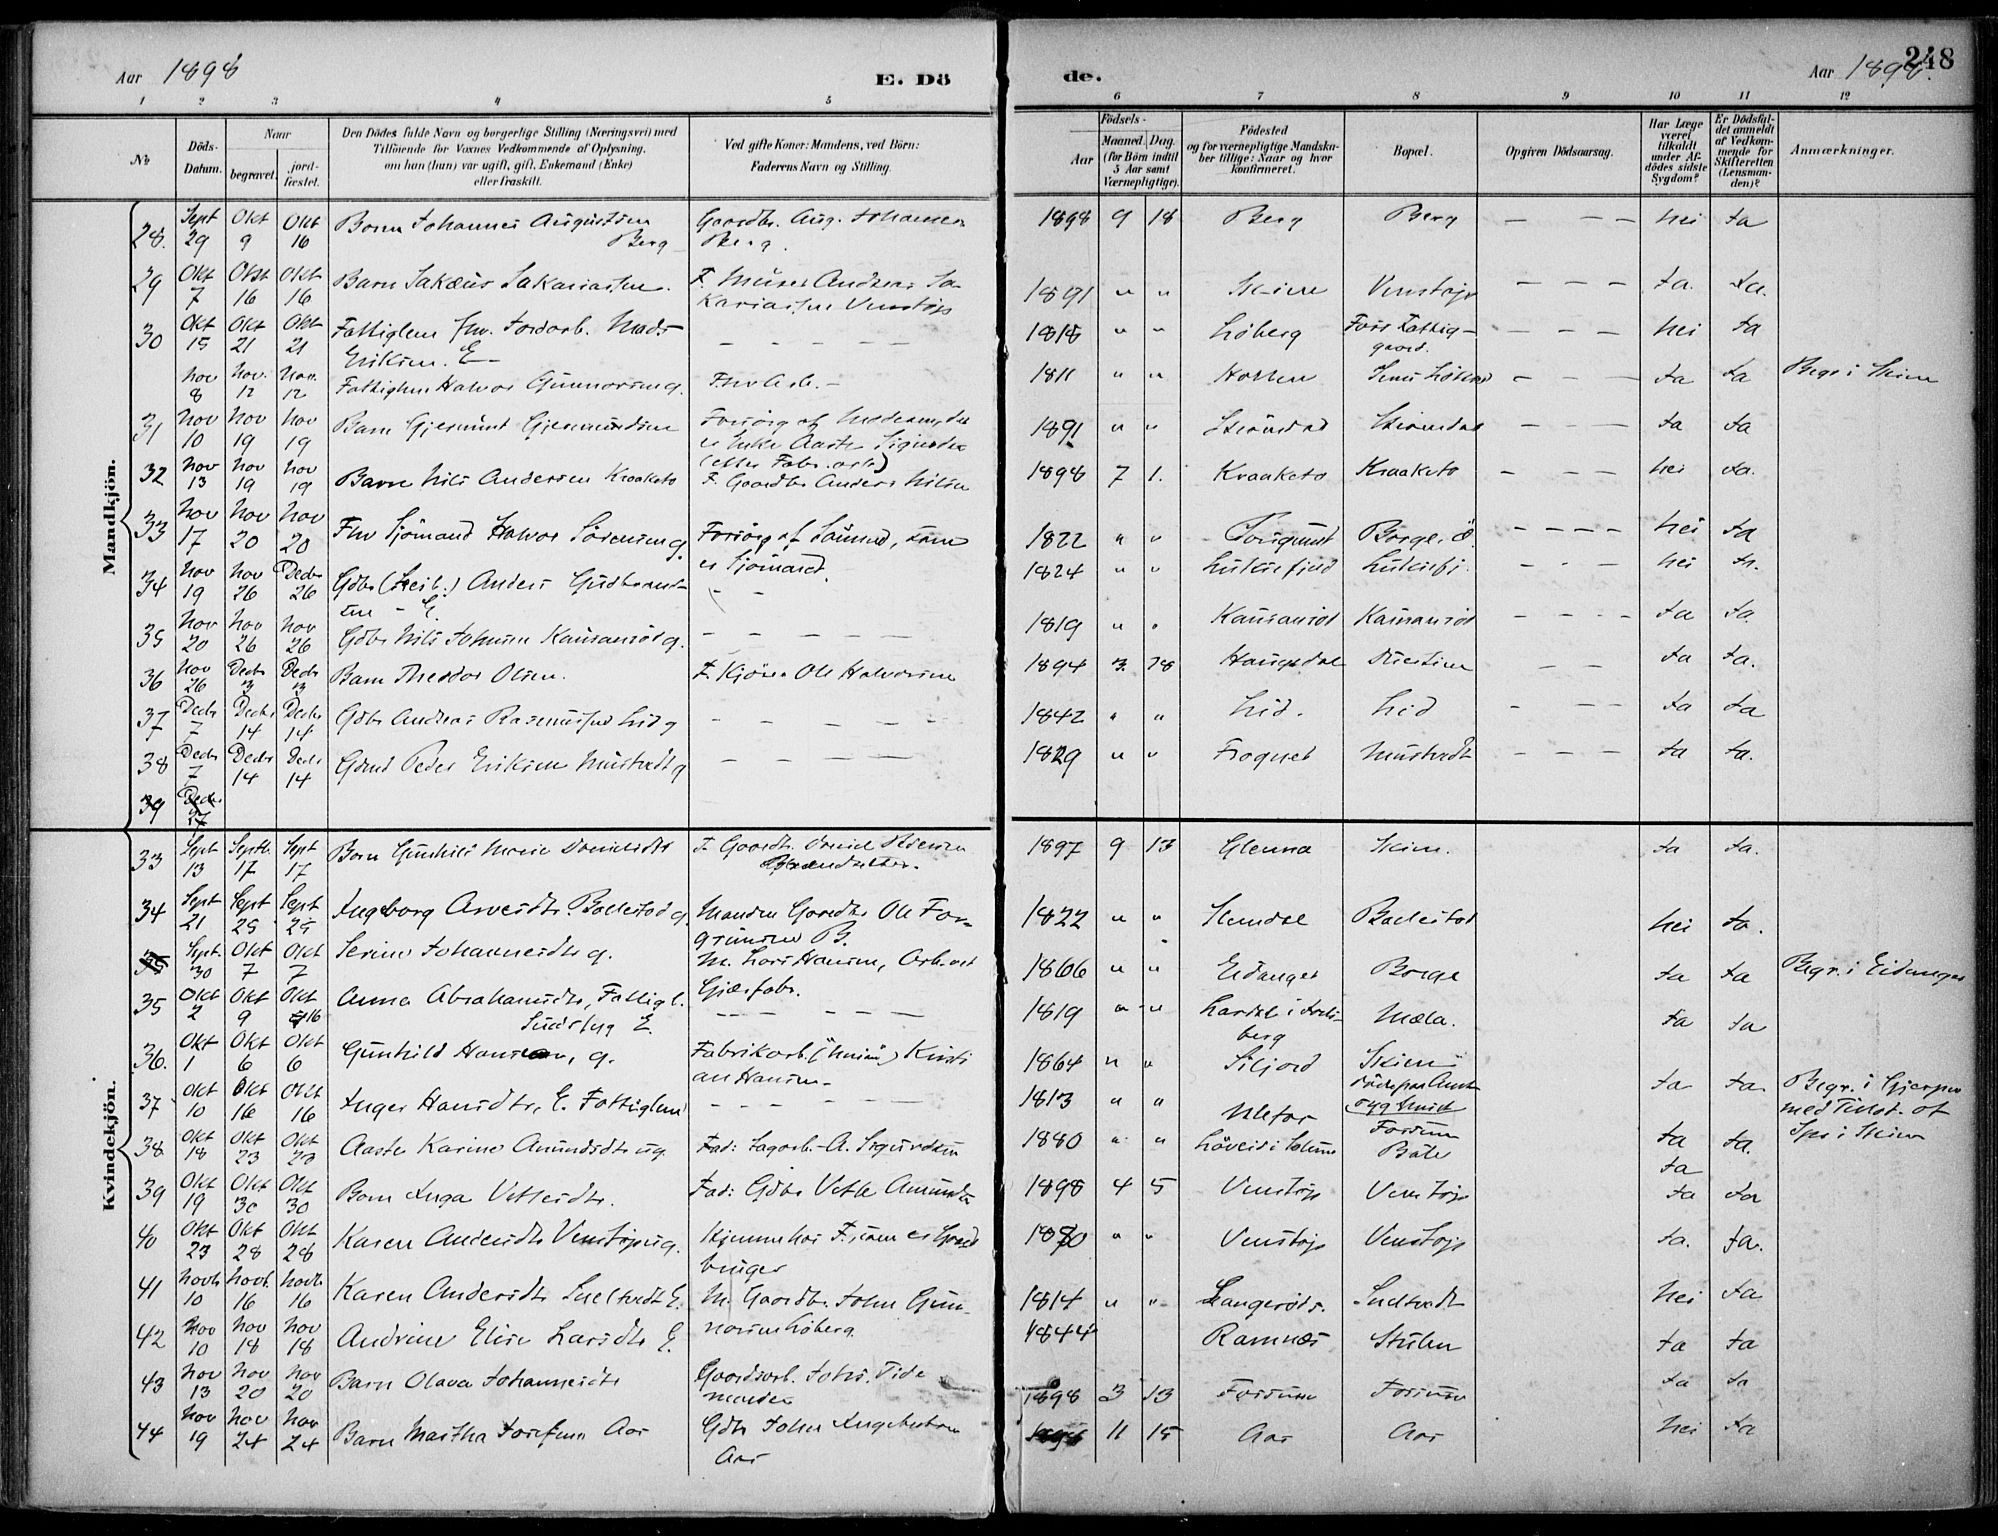 Aar 1898
E. Dö
de.
Aar 1898.
248
1 2 3 4 5 6 7 8 9 10 11 12
No
Döds-Datum.
Naar
begravet.
jordfæstet.
Den Dödes fulde Navn og borgerlige Stilling (Næringsvei) med
Tilföiende for Voxnes Vedkommende af Oplysning,
om han (hun) var ugift, gift, Enkemand (Enke)
eller fraskilt.
Ved gifte Koner: Mandens, ved Börn:
Faderens Navn og Stilling.
Födsels-
Aar
Maaned. Dag.
(for Börn indtil
5 Aar samt
Værnepligtige).
Födested
og for værnepligtige Mandskaber tillige: Naar og hvor
konfirmeret.
Bopæl.
Opgiven Dödsaarsag.
Har Læge
været
tilkaldt
under Afdödes sidste
Sygdom?
Er Dödsfaldet anmeldt
af Vedkommende for
Skifteretten
(Lensmanden)?
Anmærkninger.
Mandkjön.
28. Sept 29 Okt 9 Okt 16 Barn Johannes Augustin Berg Gaardbr. Aug. Johansen Berg. 1898 9 18 Berg Berg — — — Nei Ja
29 Okt 7 Okt 16 Okt 16 Barn Sakæus Sakariassen. F. Murer Andreas Sakariassen Venstøp 1891 " " Skien Venstøp — — — — Ja. Ja.
30 Okt 15 Okt 21 Okt 21 Fattiglem fhv. Jordarb. Mads Eriksen. E — — — — — — 1818 " " Løberg Foss Fattiggaard. — — — — Nei Ja
Nov 8 Nov. 12 Nov. 12 Fattiglem Halvor Gunnarsen g. Fhv Arb. — 1811 " " — — — — Ja Ja Begr i Skien
31 Nov 10 Nov 19 Nov 19 Barn Gjermund Gjermundsen Forsørg af Moderen, der er Enke Aaste (efter Fabr.arb.) 1891 " " Strømdal Strømdal — — — — Ja Ja
32 Nov 13 Nov 19 Nov 19 Barn Nils Andersen Kraaketo F. Gaardbr Anders Nilsen 1898 7 1. Kraaketo Kraaketo — — — — Nei Ja.
33 Nov 17 Nov 20 Nov 20 Fhv Sjömand Halvor Sörensen g. Forsörg af Sönnen, som er Sjömand. 1822 " " Borge. — — — — Nei Ja
34 Nov 19 Nov 26 Decbr 26 Gdbr Anders Gudbrandsen — E. — — 1824 " " — — — Nei Ja.
35 Nov 20 Nov 26 Nov 26 Gdbr Nils Johnsen g. — — — — — 1819 " " — — — — Ja Ja
36 Nov 26 Decbr 3 Decbr 3 Barn Theodor Olsen. F. Ole Halvorsen 1894 3. 28 Haugsdal — — Ja Ja.
37 Decbr 7 Decbr 14 Decbr 14 Gdbr Andreas Rasmussen Lid g — — — — — 1842 " " Lid. Lid — — — Ja Ja
38 Decbr 7 Decbr 14 Decbr 14 Gdmd Peder Eriksen Mustvedt g — — — — — 1829 " " Frogner Mustvedt — — — — Ja Ja.
39 Decbr 27
Kvindekjön.
33 Sept 13 Septb. 17 Sept 17 Barn Gunhild Marie Danielsdtr F. Gaardbr. Daniel Pedersen 1897 9 13 Glenna Skien. Ja Ja.
34 Sept 21 Sept 25 Sept 25 Ingeborg Arvesdtr. Ballestad g. Manden Gaardbr Ole B. 1822 " " Ballestad Nei Ja.
35 Sept. 30 Okt 7 Okt 7 Serine Johannesdtr g. M. Lars Hansen, Arb. ved Gjærfabr. 1866 " " Eidanger Borge Ja Ja Begr. i Eidanger
35 Okt 2 Okt 9 Okt 16 Anna Abrahamsdtr, Fattigl. E. — — — — — — 1819 " " Mæla. Ja Ja
36. Okt 1 Okt 6 Okt 6 Gunhild Hansen, g. Fabrikarb. (Union) Kristian Hansen. 1864 " " Siljord Skien Ja Ja. Begr. i Gjerpen med Tillad. af Spr i Skien
37 Okt 10 Okt 16 Okt 16 Inger Hansdtr, E. Fattiglem — — — — — — 1813 " " Ulefos Fossum
38 Okt 18 Okt 23 Okt 23 Aaste Karine Amundsdtr ug. Fad: Sagarb. A. Sigurdsen 1880 " " Løveid i Solum Bøle Ja Ja.
39 Okt 19 Okt 30 Okt 30 Barn Inga Vetlesdtr. Fad: Gdbr Vetle Amundsen 1898 4 5 Venstøp Venstøp Ja Ja
40 Okt 23 Okt 28 Okt 28 Karen Andersdtr Venstøp ug. Hjemme hos F., som er Gaardbruger 1870 " " Venstøp Venstøp Ja. Ja.
41 Novb. 10 Novb. 16 Novb. 16 Karen Andersdtr Sneltvedt E. M. Gaardbr. John Gunnarsen Løberg. 1814 " " Langerød. Sneltvedt Nei Ja
42 Nov 10 Nov 18 Nov 18 Andrine Elise Larsdtr E. 1844 Ramnæs Stulen Ja Ja
43 Nov 13 Nov 20 Nov 20 Barn Olava Johannesdtr Gaardsarb. Johs. Tidemandsen 1898 3 13 Fossum Fossum Ja Ja
44 Nov 19 Nov 24 Nov 24 Barn Martha Josefine Aas Gdbr John Ingebretsen Aas 11 15 Aas Aas Nei Ja